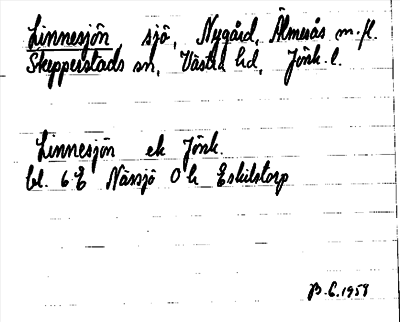 Linnesjön sjö, Nygård, Älmesås m.fl.
Skepperstads sn, Västra hd, Jönk. l.
Linnesjön ek Jönk.
bl. 6 E Nässjö O k Eskilstorp
B.C. 1958